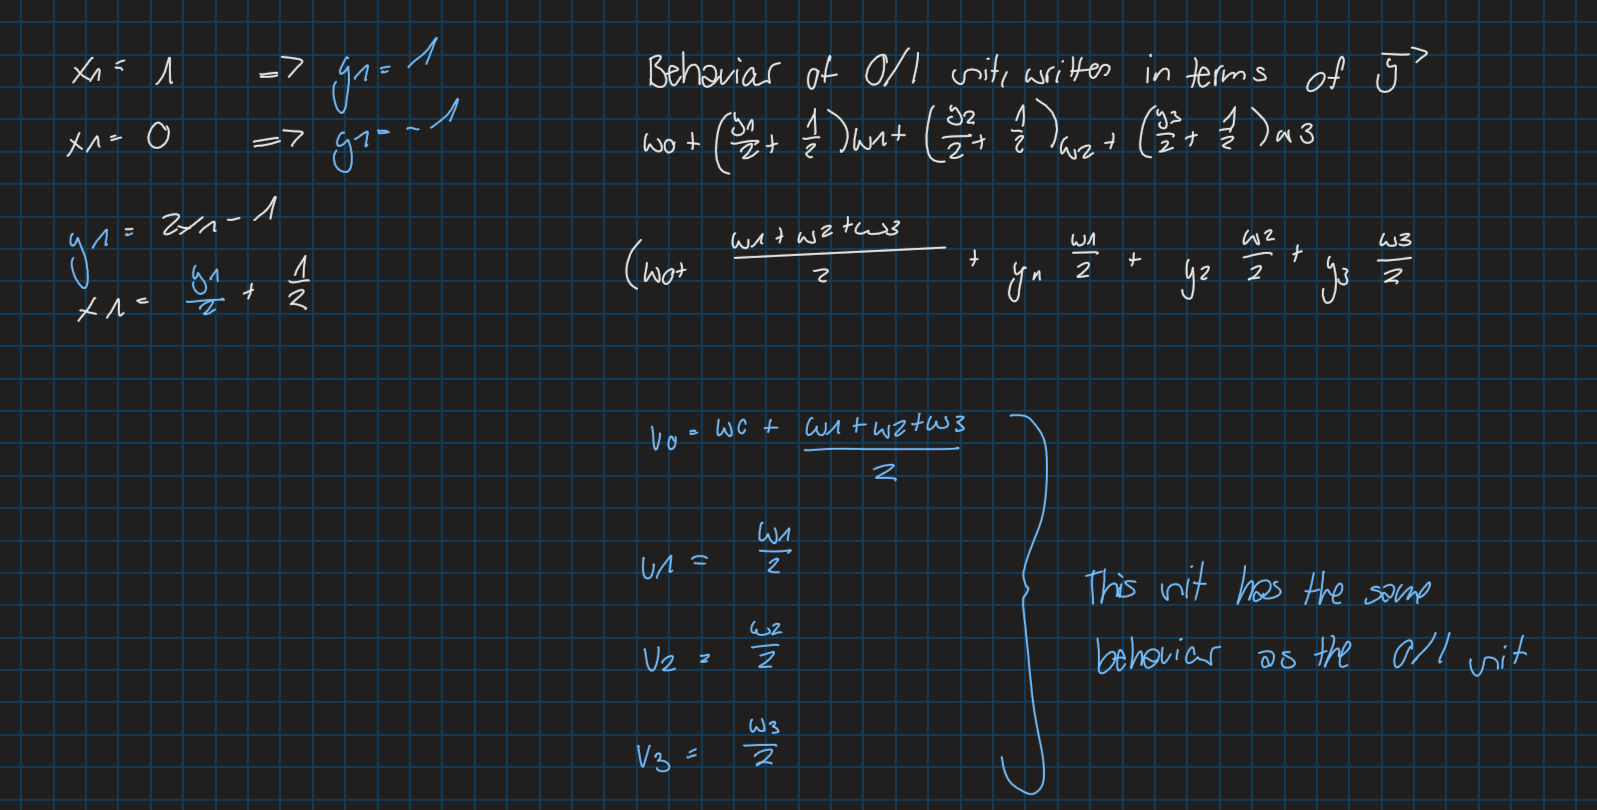 x1 = 1 => y1 = 1
x1 = 0 => y1 = -1
y1 = 2x1 - 1
x1 = y1/2 + 1/2
Behavior of 0/1 unit, written in terms of y⃗
w0 + (y1/2 + 1/2)w1 + (y2/2 + 1/2)w2 + (y3/2 + 1/2)w3
(w0 + (w1 + w2 + w3)/2 + y1 w1/2 + y2 w2/2 + y3 w3/2
v0 = w0 + (w1 + w2 + w3)/2
v1 = w1/2
v2 = w2/2
v3 = w3/2
This unit has the same
behavior as the 0/1 unit